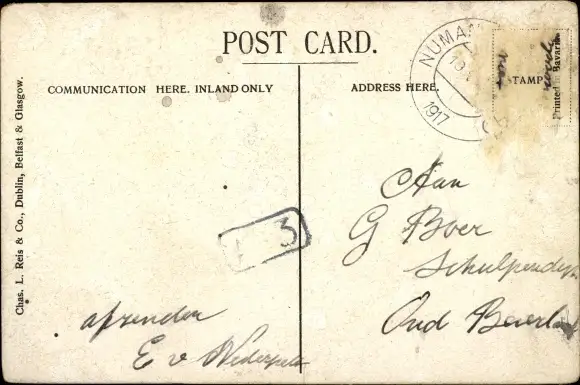 POST CARD.
COMMUNICATION HERE. INLAND ONLY
ADDRESS HERE.
STAMP
Printed in Bavaria
NUMAN
1917
Chas. L. Reis & Co., Dublin, Belfast & Glasgow.
Aan
G Boer
Oud Beierl
3
afzender
E v